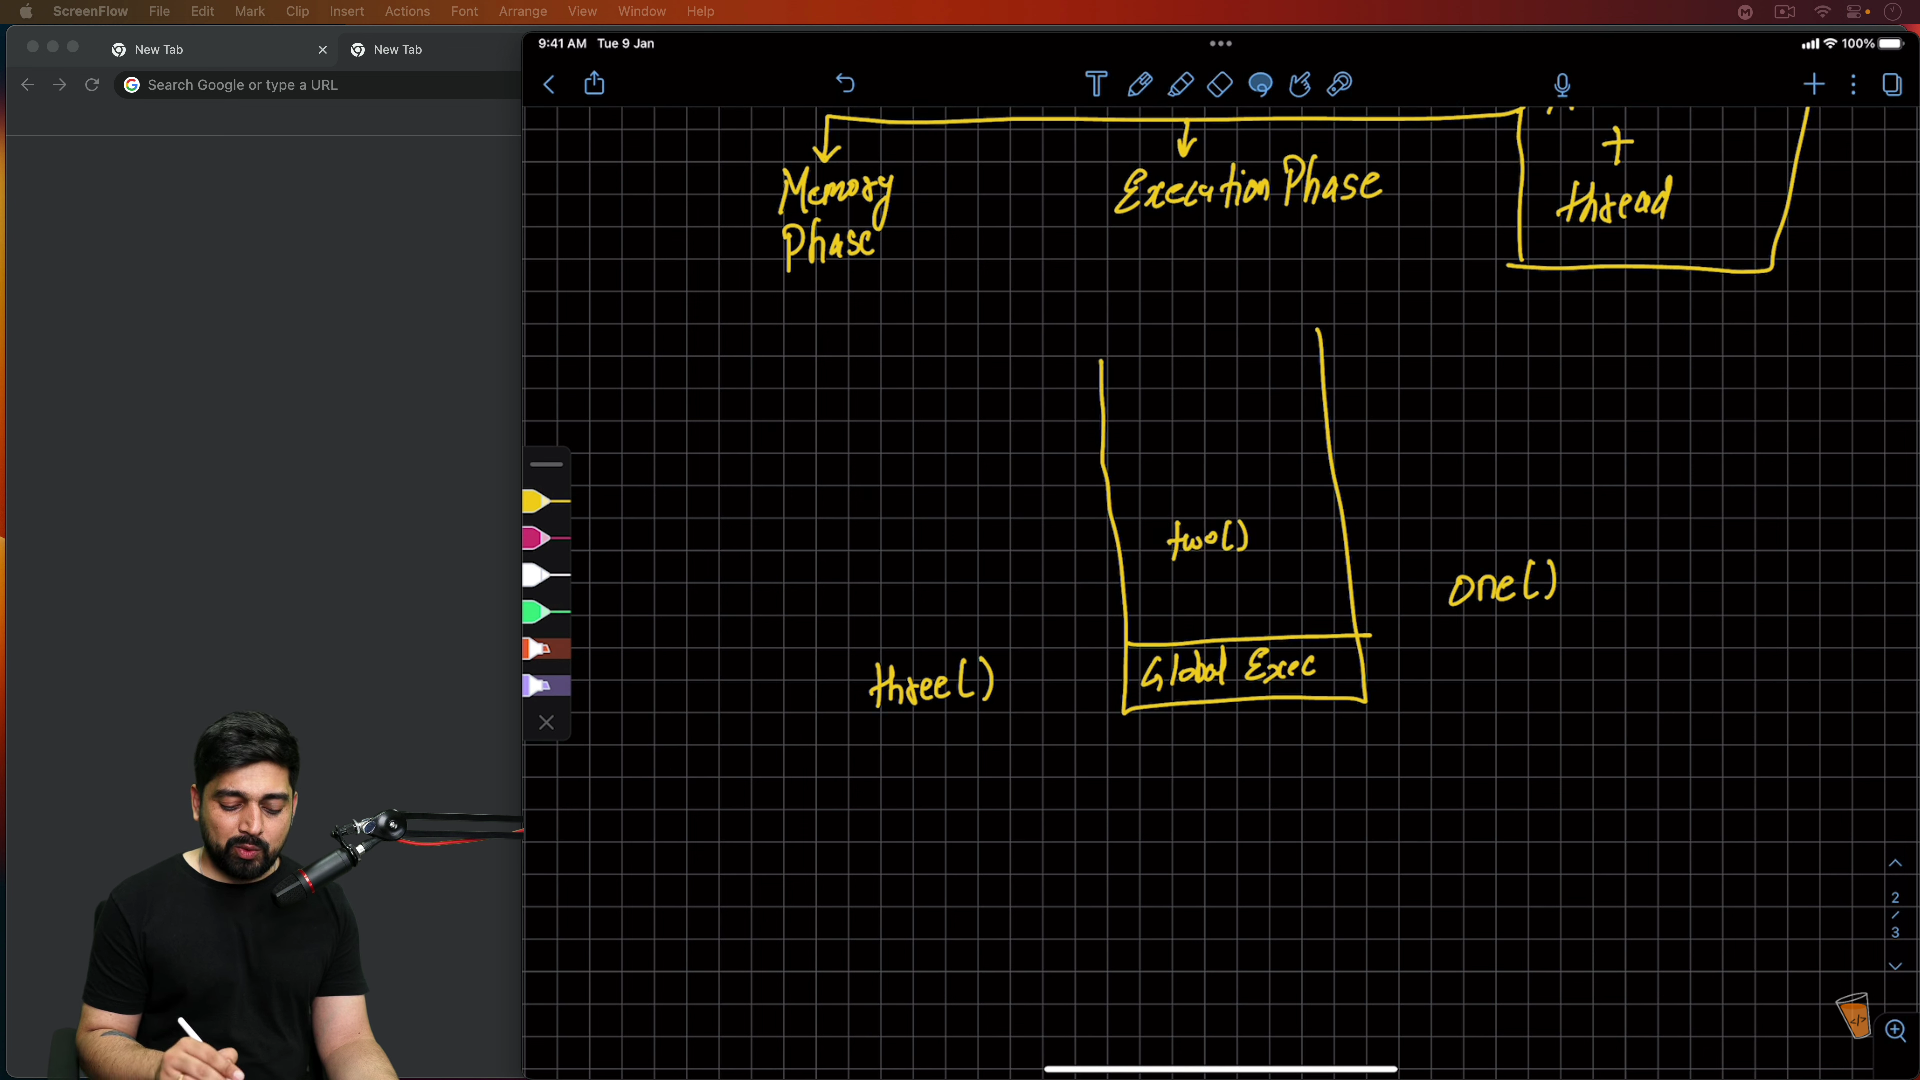 ScreenFlow File Edit Mark Clip Insert Actions Font Arrange View Window Help
New Tab
New Tab
Search Google or type a URL
9:41 AM Tue 9 Jan
100%
T
+
thread
Memory
Phase
Execution Phase
two()
one()
Global Exec
three()
2
/
3
</>